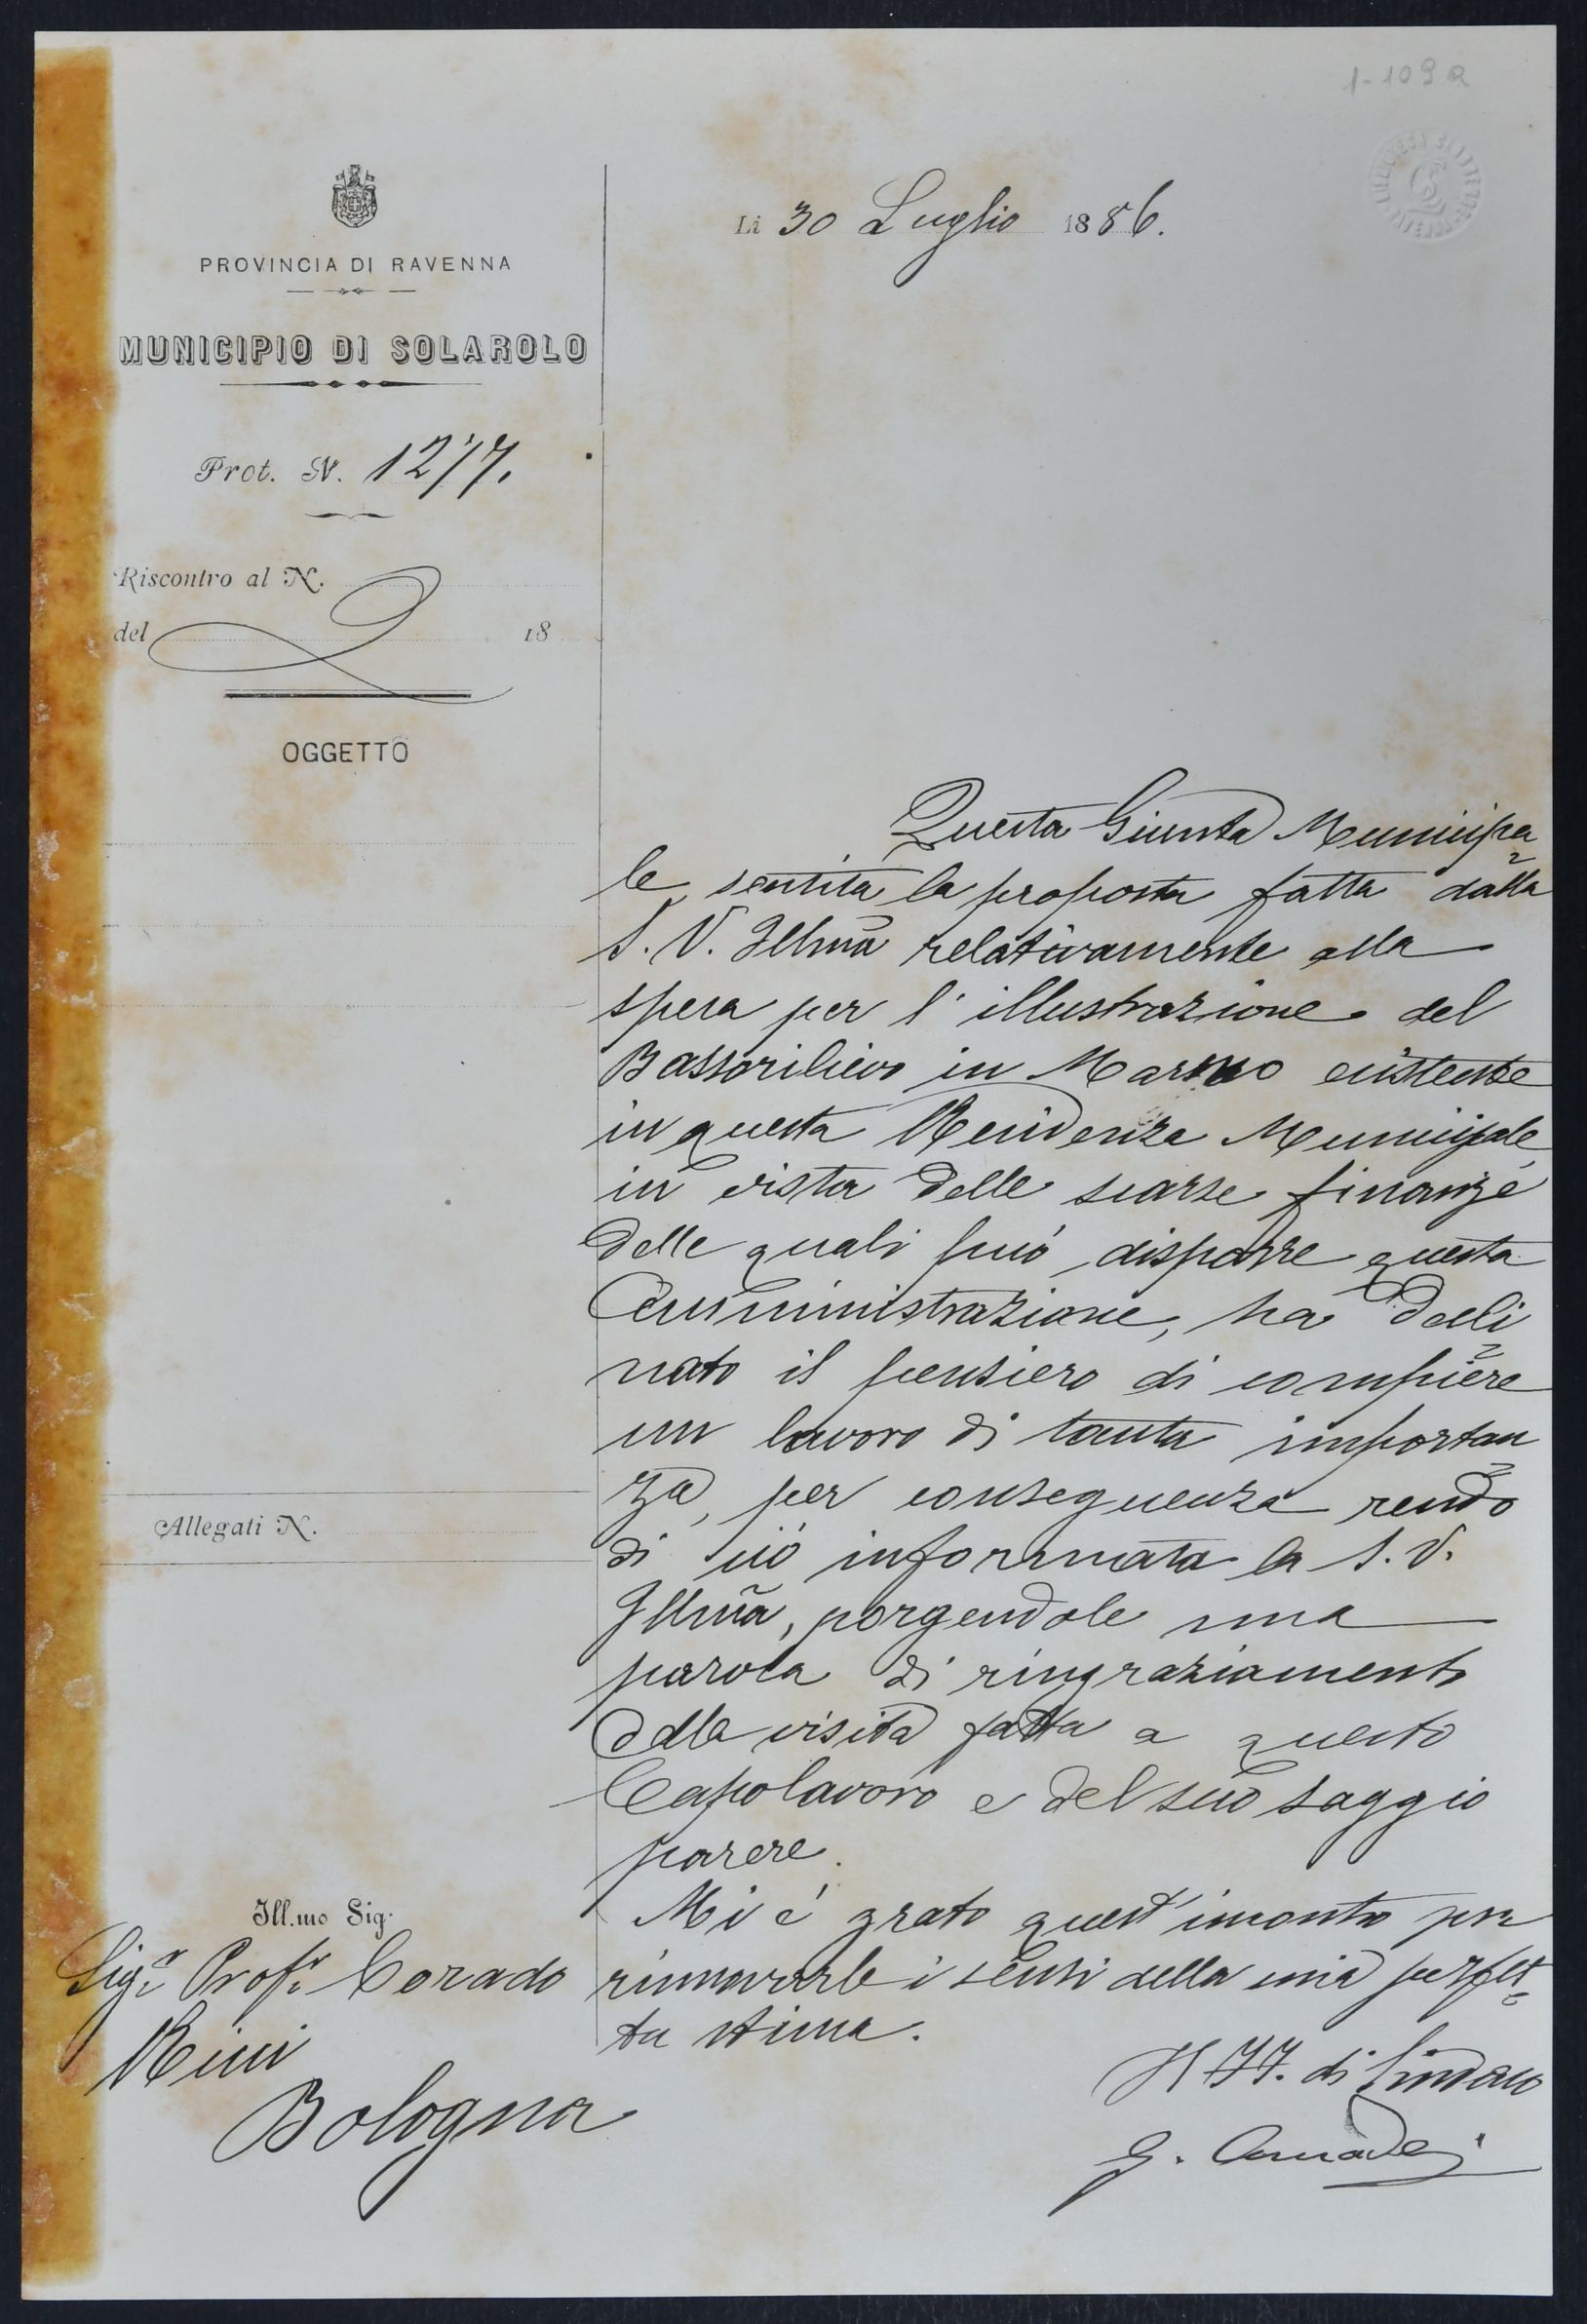 1-109a
PROVINCIA DI RAVENNA
MUNICIPIO DI SOLAROLO
Prot. N. 1277.
Riscontro al N.
del 18
OGGETTO
Allegati N.
Ill.mo Sig.
Sigr. Profr. Corado
Bologna
Li 30 Luglio 1886.
Questa Giunta Municipa=
le sentita la proposta fatta dalla
S. V. Illma relativamente alla
spesa per l'illustrazione del
Bassorilievo in Marmo esistente
in questa Residenza Municipale,
in vista delle scarse finanze
delle quali può disporre questa
Amministrazione, ha decli=
nato il pensiero di compiere
un lavoro di tanta importan=
za, per conseguenza rendo
di ciò informata la S. V.
Illma, porgendole una
parola di ringraziamento
della visita fatta a questo
Capolavoro e del suo saggio
parere.
Mi è grato quest'incontro per
rinnovarle i sensi della mia perfet=
ta stima.
Il FF. di Sindaco
G. Amadei